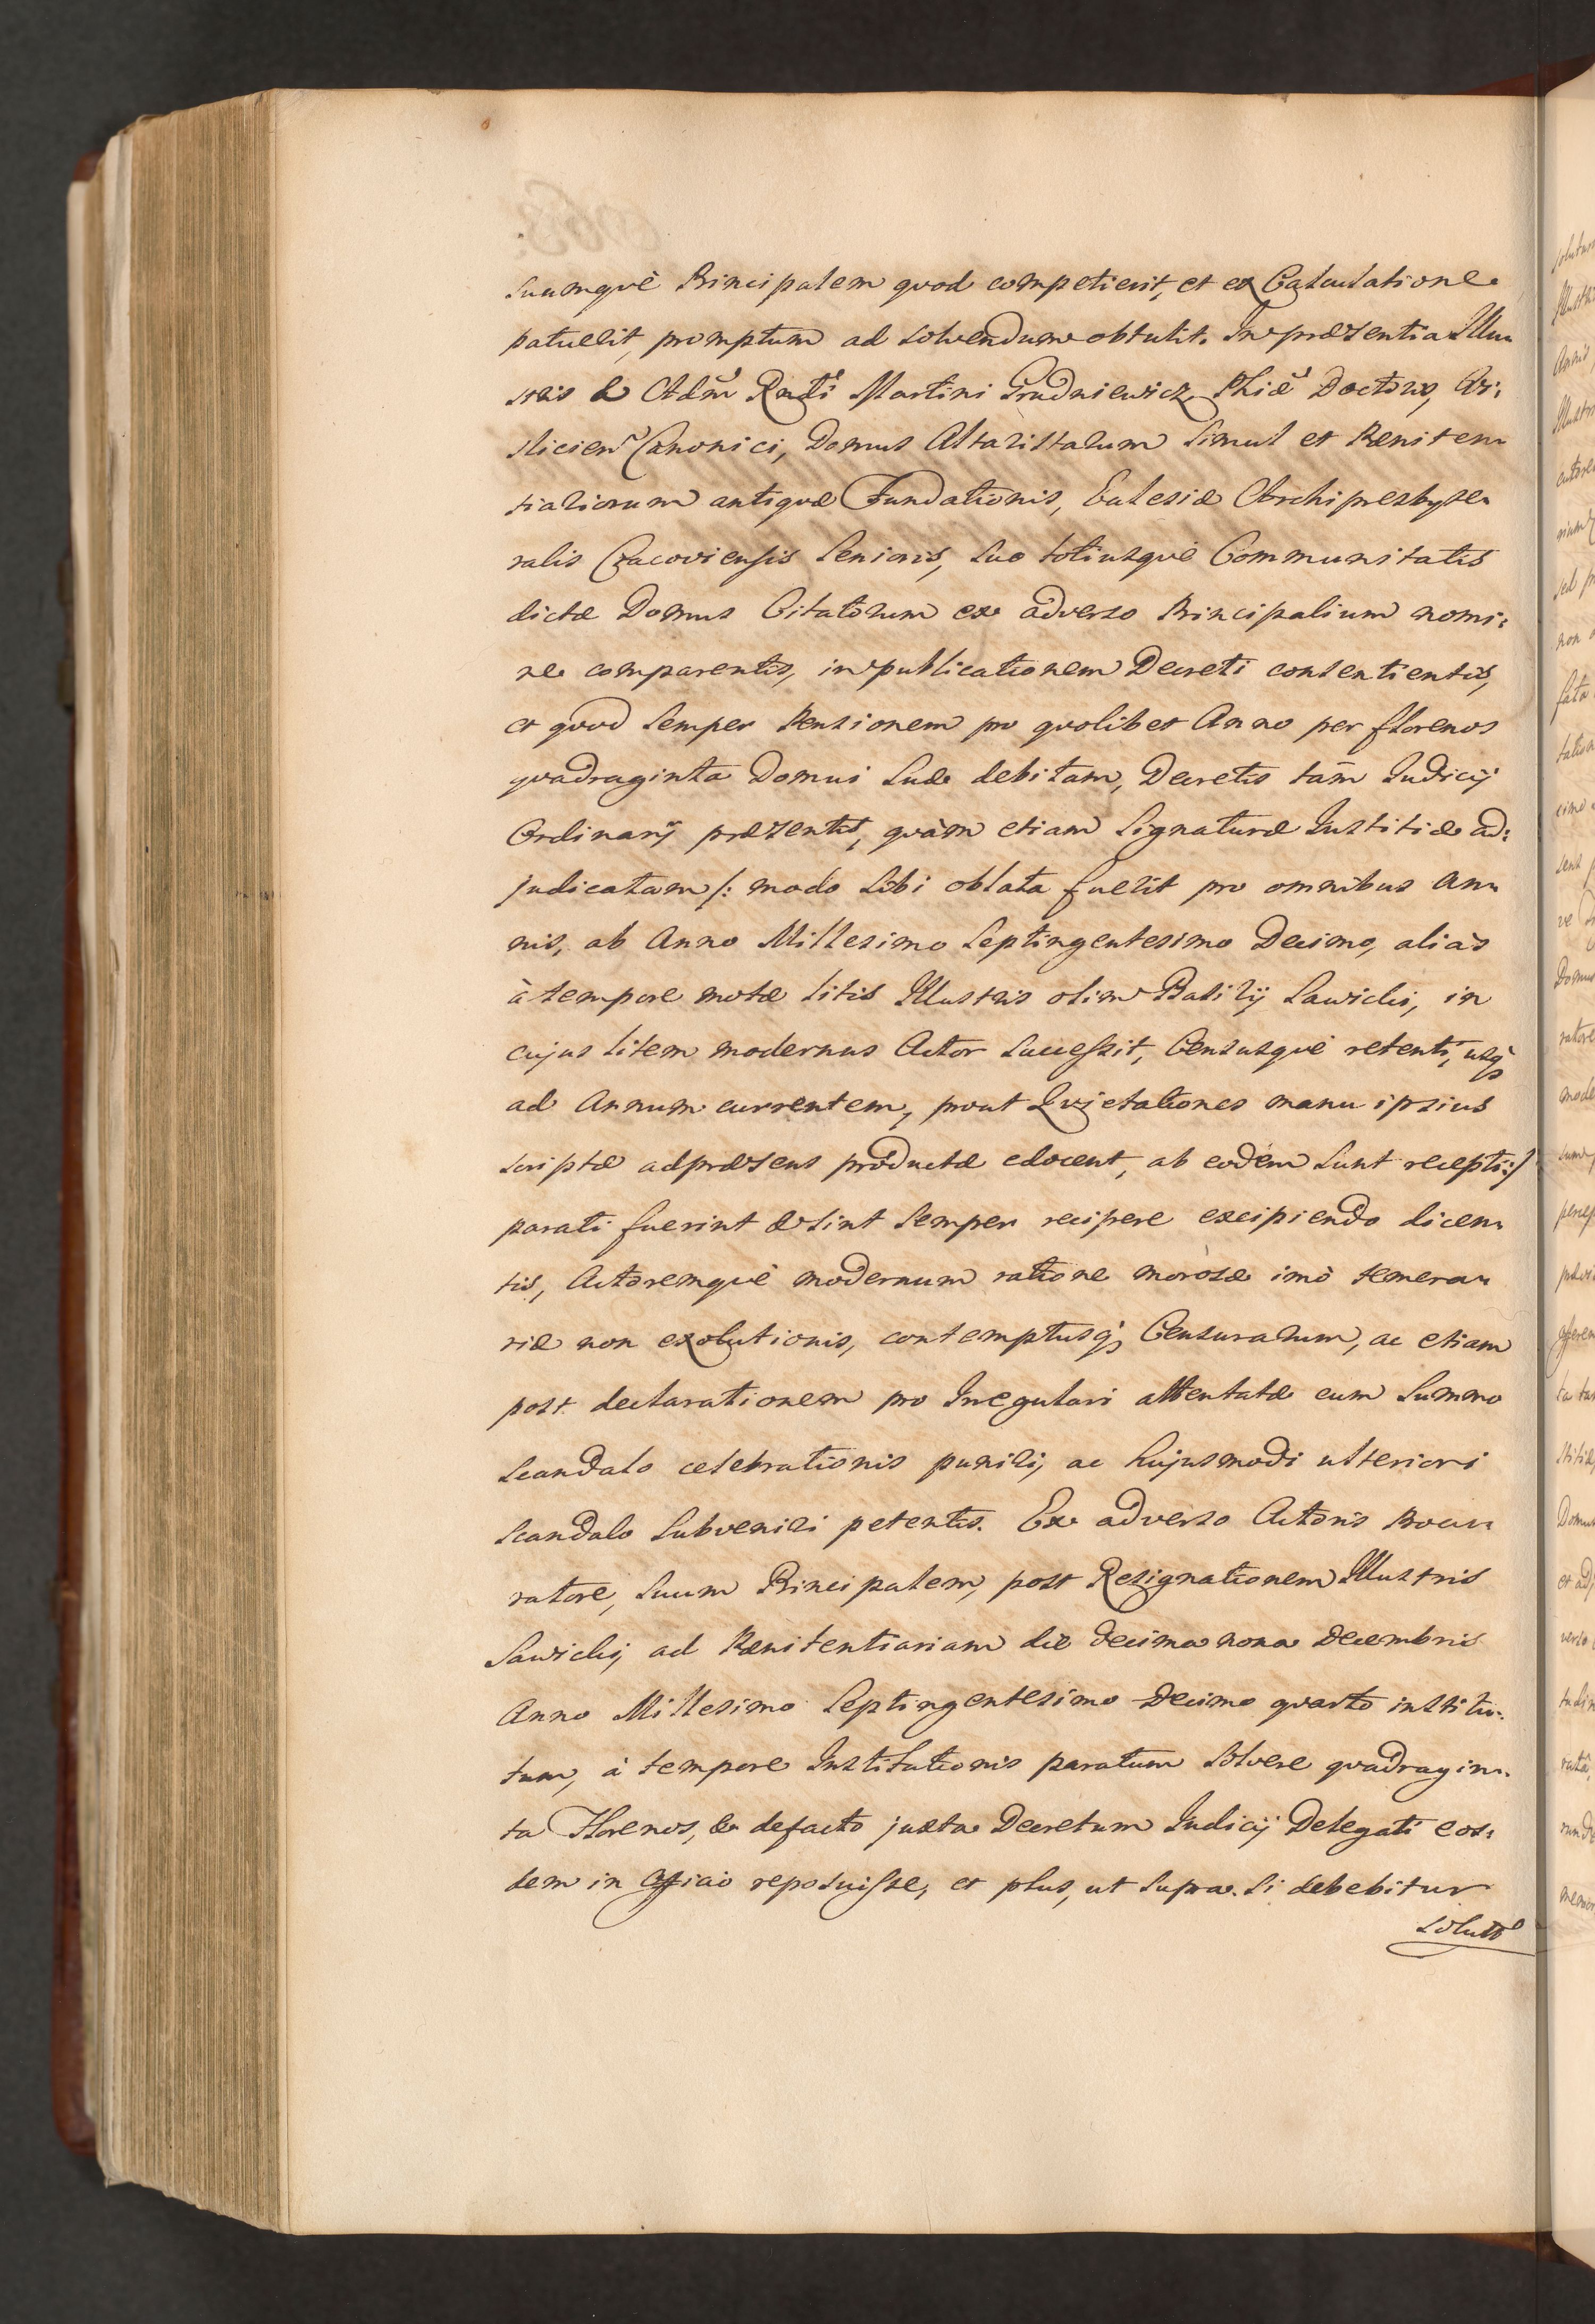 suumquè Principalem quod competierit, et ex Calculatione
patuerit, promptum ad solvendum obtulit. In præsentia Illu-
stris & Adm Rndi Martini Grudniewicz Phiæ Doctoris, Vi-
slicien Canonici, Domus Altaristarum simul et Pœniten-
tiariorum antiquæ Fundationis, Ecclesiæ Archipresbyte-
ralis Cracoviensis Senioris, suo totiusquè Communitatis
dictæ Domus Citatorum ex adverso Principalium nomi-
ne comparentis, in publicationem Decreti consentientis,
et quod semper Pensionem pro quolibet Anno per florenos
quadraginta Domui suæ debitam, Decretis tam Judicij
Ordinarij præsentis, quàm etiam Signaturæ Justitiæ ad-
judicatam /: modo sibi oblata fuerit pro omnibus An-
nis, ab Anno Millesimo Septingentesimo Decimo, aliàs
à tempore motæ litis Illustris olim Basilij Sawicki, in
cujus litem modernus Actor successit, Censusquè retenti, usq
ad Annum currentem, prout Quietationes manu ipsius
scriptæ ad præsens productæ edocent, ab eodem sunt recepti :/
parati fuerint & sint semper recipere excipiendo dicen-
tis, Actoremquè modernum ratione morosæ imò temera-
riæ non exolutionis, contemptusq Censurarum, ac etiam
post declarationem pro Irregulari attentatæ cum summo
scandalo celebrationis puniri, ac hujusmodi ulteriori
scandalo subveniri petentis. Ex adverso Actoris Procu-
ratore, suum Principalem, post Resignationem Illustris
Sawicki, ad Pœnitentiariam die decima nona Decembris
Anno Millesimo Septingentesimo Decimo quarto institu-
tum, à tempore Institutionis paratum solvere quadragin-
ta Florenos, & defacto juxta Decretum Judicij Delegati eos-
dem in Officio reposuisse, et plus, ut supra. si debebitur
soluto